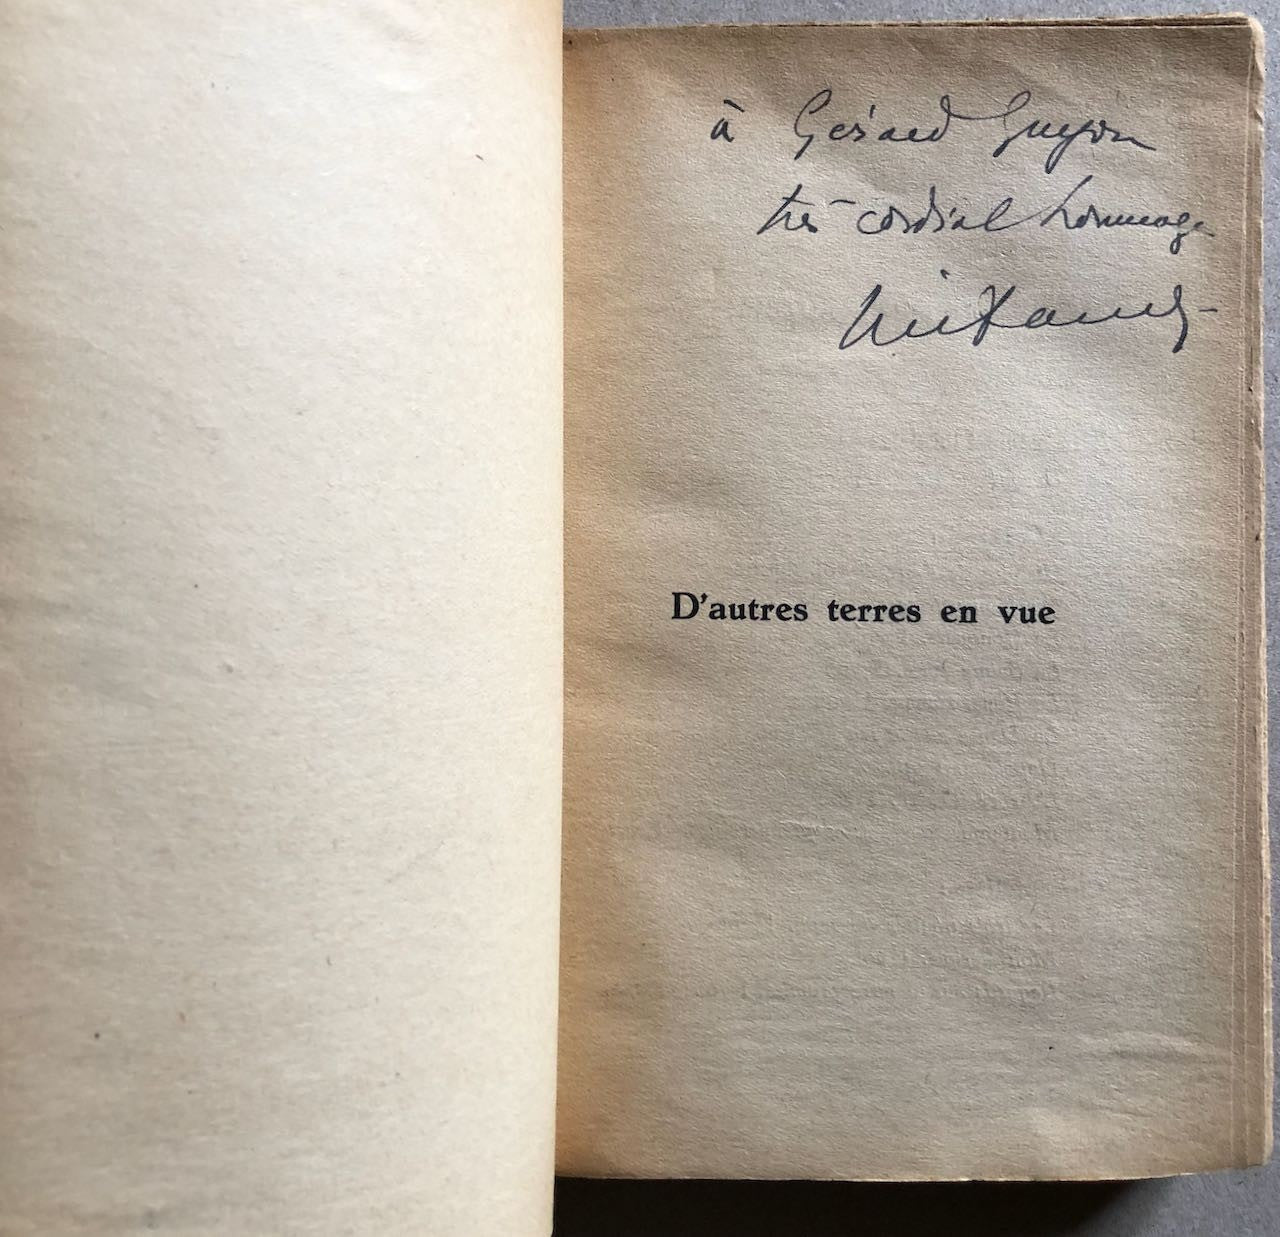 à Gérard Guyon
très cordial hommage
D'autres terres en vue